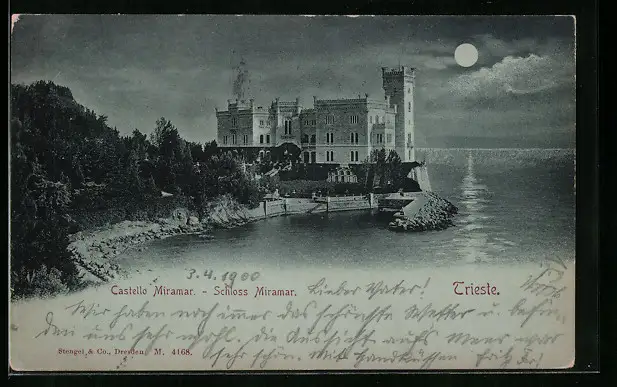 3.4.1900
Castello Miramar. - Schloss Miramar. Lieber Vater! Trieste.
Wir haben noch immer das schönste Wetter u. befin-
den uns sehr wohl. Die Aussicht aufs Meer war
Stengel & Co., Dresden, M. 4168. sehr schön. Mit Handküssen Fritz